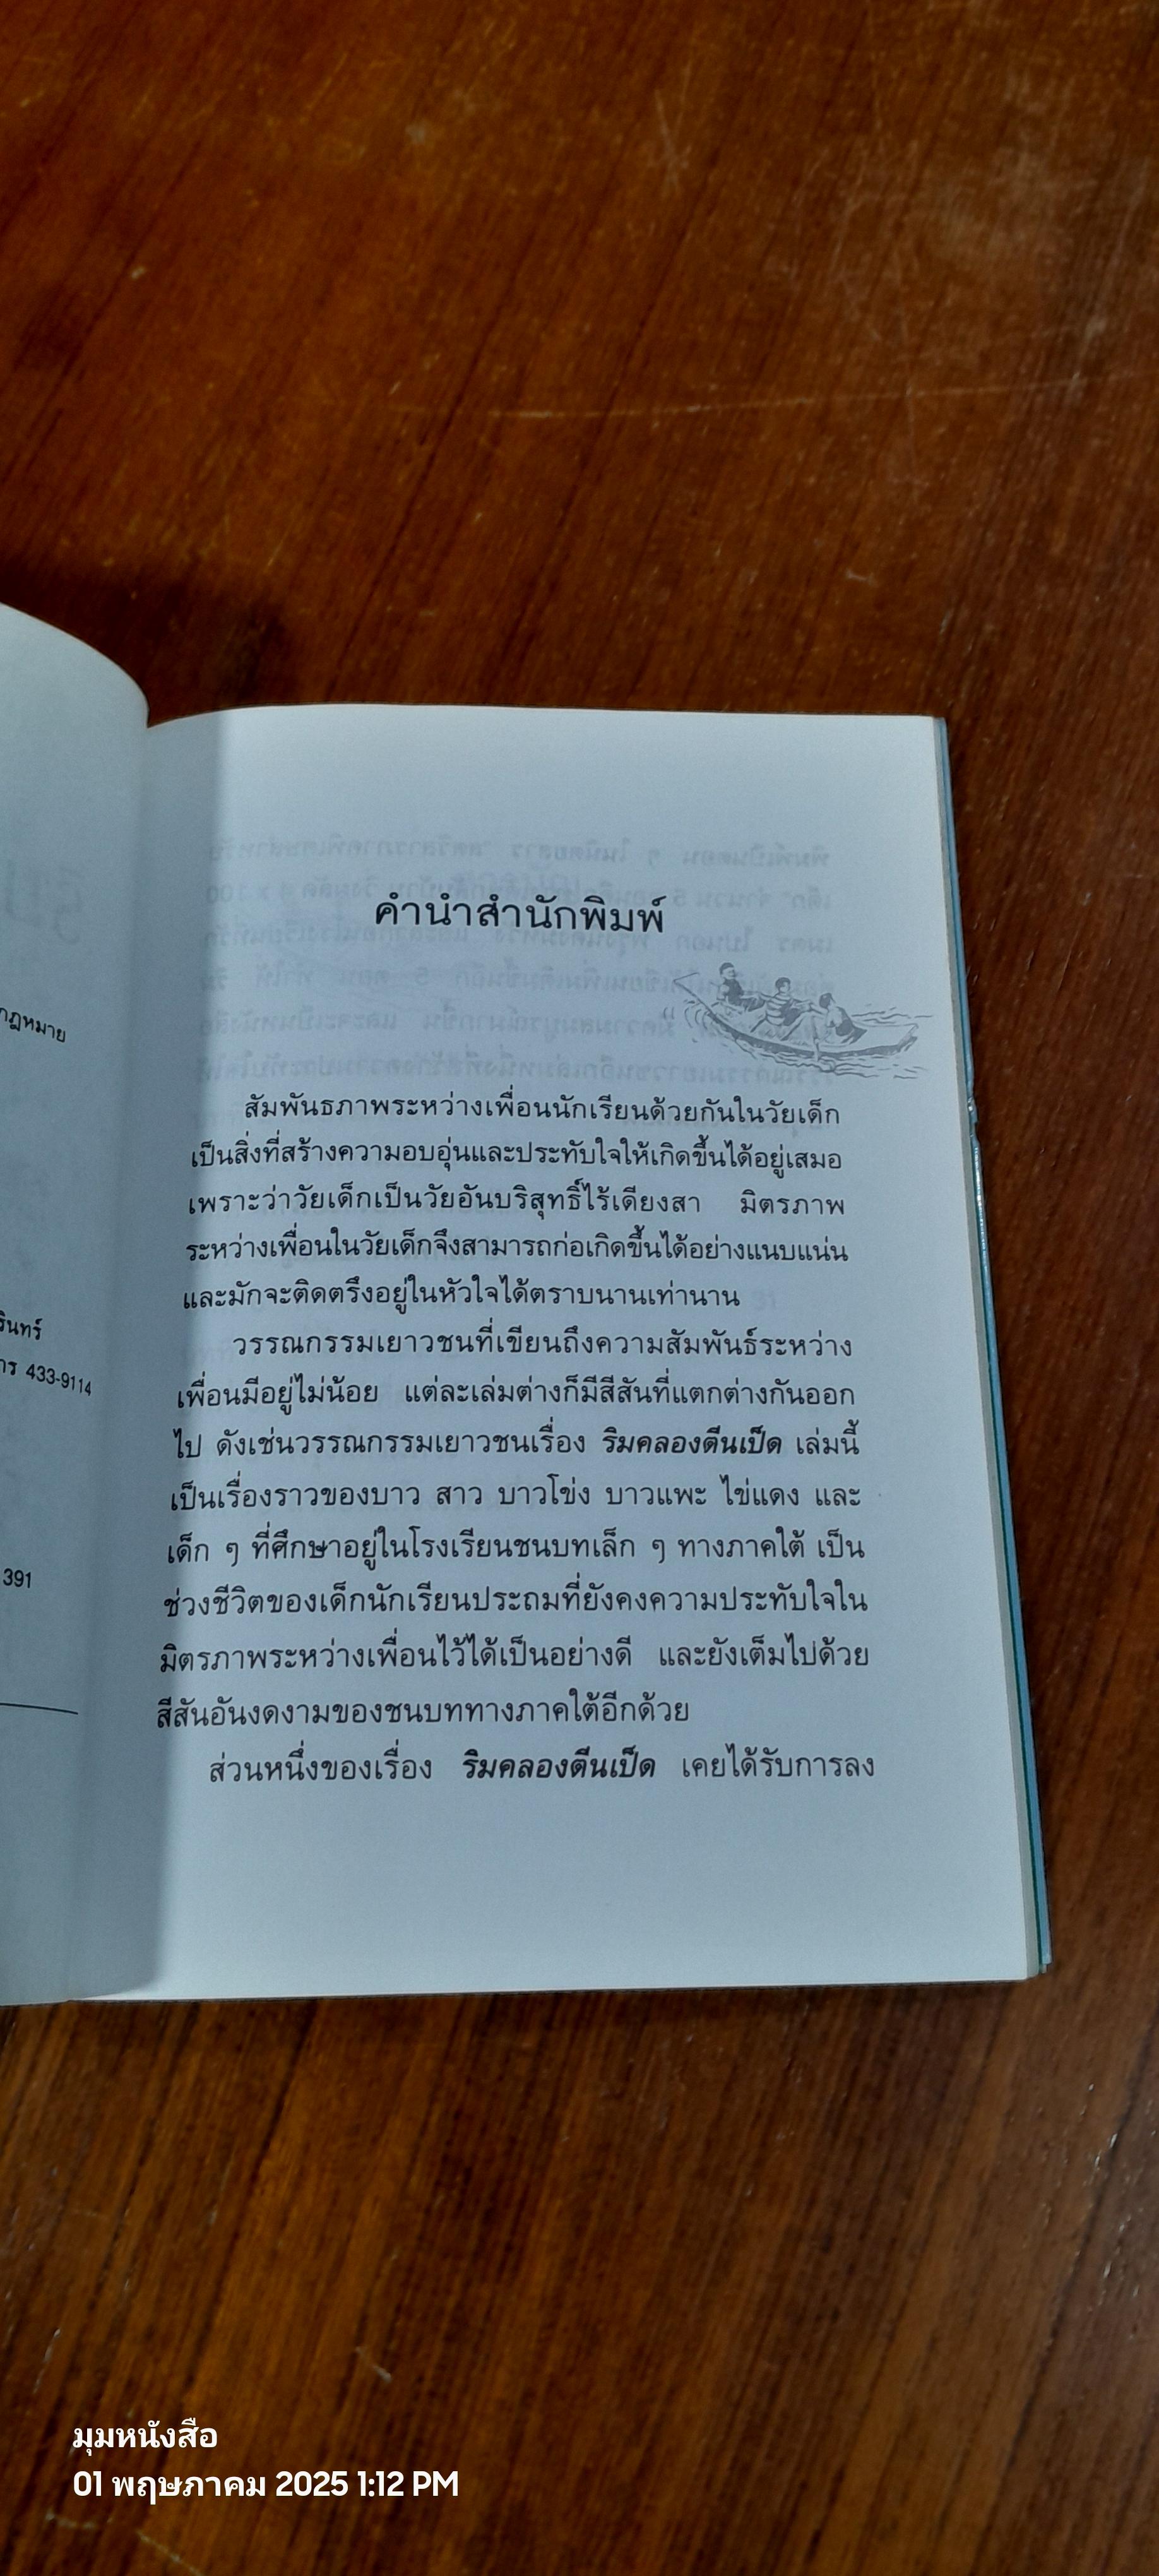 กฎหมาย
รินทร์
433-9114
391
คำนำสำนักพิมพ์
สัมพันธภาพระหว่างเพื่อนนักเรียนด้วยกันในวัยเด็ก
เป็นสิ่งที่สร้างความอบอุ่นและประทับใจให้เกิดขึ้นได้อยู่เสมอ
เพราะว่าวัยเด็กเป็นวัยอันบริสุทธิ์ไร้เดียงสา มิตรภาพ
ระหว่างเพื่อนในวัยเด็กจึงสามารถก่อเกิดขึ้นได้อย่างแนบแน่น
และมักจะติดตรึงอยู่ในหัวใจได้ตราบนานเท่านาน
วรรณกรรมเยาวชนที่เขียนถึงความสัมพันธ์ระหว่าง
เพื่อนมีอยู่ไม่น้อย แต่ละเล่มต่างก็มีสีสันที่แตกต่างกันออก
ไป ดังเช่นวรรณกรรมเยาวชนเรื่อง ริมคลองตีนเป็ด เล่มนี้
เป็นเรื่องราวของบาว สาว บาวโข่ง บาวแพะ ไข่แดง และ
เด็ก ๆ ที่ศึกษาอยู่ในโรงเรียนชนบทเล็ก ๆ ทางภาคใต้ เป็น
ช่วงชีวิตของเด็กนักเรียนประถมที่ยังคงความประทับใจใน
มิตรภาพระหว่างเพื่อนไว้ได้เป็นอย่างดี และยังเต็มไปด้วย
สีสันอันงดงามของชนบททางภาคใต้อีกด้วย
ส่วนหนึ่งของเรื่อง ริมคลองตีนเป็ด เคยได้รับการลง
มุมหนังสือ
01 พฤษภาคม 2025 1:12 PM